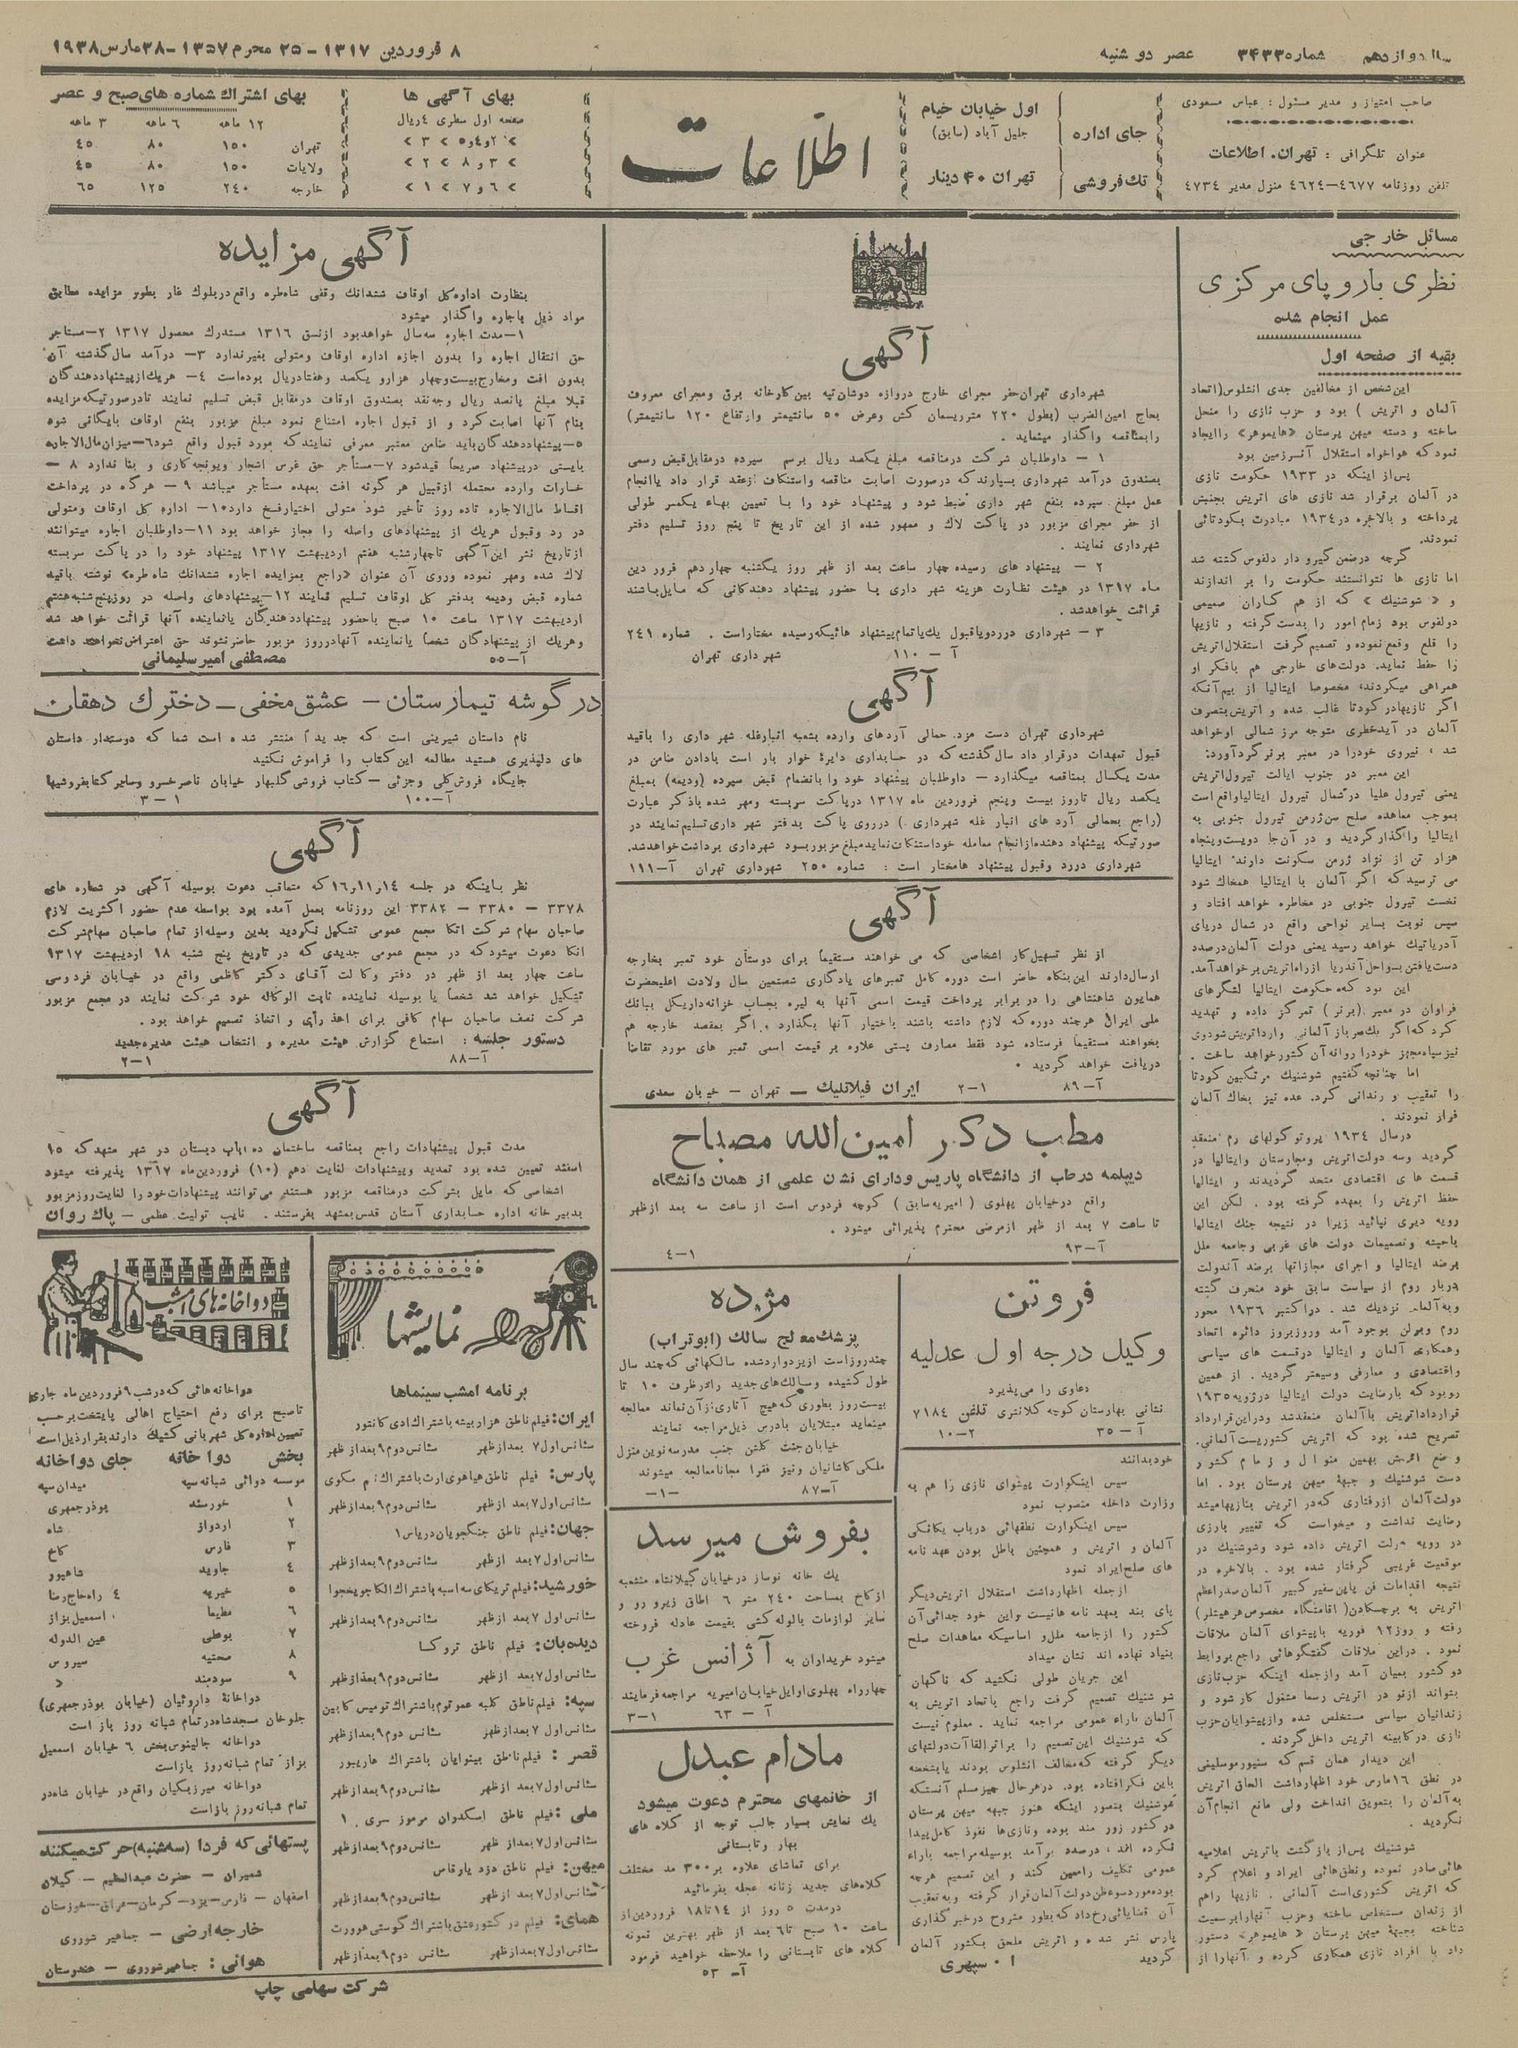 سال دوازدهم
شماره ۳۴۳۳
عصر دوشنبه
۸ فروردین ۱۳۱۷ - ۲۵ محرم ۱۳۵۷ - ۲۸ مارس ۱۹۳۸
صاحب امتیاز و مدیر مسئول : عباس مسعودی
عنوان تلگرافی : تهران . اطلاعات
تلفن روزنامه ۴۶۷۷-۴۶۲۴ منزل مدیر ۴۷۳۴
جای اداره
اول خیابان خیام
جلیل آباد (سابق)
تک فروشی
تهران ۴۰ دینار
اطلاعات
بهای آگهی ها
صفحه اول سطری ۴ ریال
بهای اشتراک شماره های صبح و عصر
۱۲ ماهه ۶ ماهه ۳ ماهه
تهران ۱۵۰ ۸۰ ۴۵
ولایات ۱۵۰ ۸۰ ۴۵
خارجه ۲۴۰ ۱۲۵ ۶۵
مسائل خارجی
نظری باروپای مرکزی
عمل انجام شده
بقیه از صفحه اول
این شخص از مخالفین جدی انشلوس (اتحاد
آلمان و اتریش ) بود و حزب نازی را منحل
ساخته و دسته میهن پرستان «هایموهر» را ایجاد
نمود که هواخواه استقلال آنسرزمین بود
پس از اینکه در ۱۹۳۳ حکومت نازی
در آلمان برقرار شد نازی های اتریش بجنبش
پرداخته و بالاخره در ۱۹۳۴ مبادرت بکودتائی
نمودند.
گرچه در ضمن گیرو دار دلفوس کشته شد
اما نازی ها نتوانستند حکومت را بر اندازند
و « شوشنیک » که از هم کاران صمیمی
دولفوس بود زمام امور را بدست گرفته و نازیها
را قلع وقمع نموده و تصمیم گرفت استقلال اتریش
را حفظ نماید. دولت های خارجی هم بافکر او
همراهی میکردند، مخصوصا ایتالیا از بیم آنکه
اگر نازیها در کودتا غالب شده و اتریش بتصرف
آلمان در آید خطری متوجه مرز شمالی او خواهد
شد ، نیروی خود را در معبر برنر گرد آورد:
این معبر در جنوب ایالت تیرول اتریش
یعنی تیرول علیا در شمال تیرول ایتالیا واقع است
بموجب معاهده صلح سن ژرمن تیرول جنوبی به
ایتالیا واگذار گردید و در آن جا دویست و پنجاه
هزار تن از نژاد ژرمن سکونت دارند. ایتالیا
می ترسید که اگر آلمان با ایتالیا همخاک شود
نخست تیرول جنوبی در مخاطره خواهد افتاد و
سپس نوبت بسایر نواحی واقع در شمال دریای
آدریاتیک خواهد رسید یعنی دولت آلمان درصدد
دست یافتن بسواحل آندریا از راه اتریش بر خواهد آمد.
این بود که حکومت ایتالیا لشگرهای
فراوان در معبر (برنر) تمرکز داده و تهدید
کرد که اگر یک سرباز آلمانی وارد اتریش شود وی
نیز سپاه مجهز خود را روانه آن کشور خواهد ساخت .
اما چنانچه گفتیم شوشنیک مرتکبین کودتا
را تعقیب و زندانی کرد. عده نیز بخاک آلمان
فرار نمودند .
در سال ۱۹۳۴ پروتوکولهای رم منعقد
گردید و سه دولت اتریش و مجارستان و ایتالیا در
قسمت های اقتصادی متحد گردیدند و ایتالیا
حفظ اتریش را بعهده گرفته بود . لکن این
رویه دیری نپائید زیرا در نتیجه جنگ ایتالیا
باحبشه و تصمیمات دولت های غربی و جامعه ملل
برضد ایتالیا و اجرای مجازاتها برضد آندولت
دربار روم از سیاست سابق خود منحرف گشته
وبه آلمان نزدیک شد . در اکتبر ۱۹۳۶ محور
روم وبرلن بوجود آمد و روز بروز دائره اتحاد
و همکاری آلمان و ایتالیا در قسمت های سیاسی
واقتصادی و معارفی وسیعتر گردید . از همین
رو بود که بارضایت دولت ایتالیا در ژویه ۱۹۳۵
قرارداد اتریش باآلمان منعقد شد و در این قرارداد
تصریح شده بود که اتریش کشوریست آلمانی.
وضع اتریش بهمین منوال و زمام کشور
دست شوشنیک و جبهۀ میهن پرستان بود . اما
دولت آلمان از رفتاری که در اتریش بنازیها میشد
رضایت نداشت و میخواست که تغییر بارزی
در رویه دولت اتریش داده شود وشوشنیک در
موقعیت غریبی گرفتار شده بود . بالاخره در
نتیجه اقدامات فن پاپن سفیر کبیر آلمان صدراعظم
اتریش به برچسگادن (اقامتگاه مخصوص هرهیتلر)
رفته و روز ۱۲ فوریه باپیشوای آلمان ملاقات
نمود . در این ملاقات گفتگوهائی راجع بروابط
دو کشور بمیان آمد و از جمله اینکه حزب نازی
بتواند از نو در اتریش رسما مشغول کار شود و
زندانیان سیاسی مستخلص شده و از پیشوایان حزب
نازی در کابینه اتریش داخل گردند .
این دیدار همان قسم که سنیور موسلینی
در نطق ۱۶ مارس خود اظهار داشت الحاق اتریش
به آلمان را بتعویق انداخت ولی مانع انجام آن
نگردید .
شوشنیک پس از بازگشت باتریش اعلامیه
هائی صادر نموده و نطق هائی ایراد و اعلام کرد
که اتریش کشوری است آلمانی . نازیها را هم
از زندان مستخلص ساخته و حزب آنها را برسمیت
شناخته بجبهۀ میهن پرستان « هایموهر» دستور
داد با افراد نازی همکاری کرده و آنها را از
خود بدانند
سپس اینکوارت پیشوای نازی را هم به
وزارت داخله منصوب نمود
سپس اینکوارت نطقهائی درباب یگانگی
آلمان و اتریش و همچنین باطل بودن عهد نامه
های صلح ایراد نمود
از جمله اظهار داشت استقلال اتریش دیگر
پای بند بعهد نامه ها نیست و این خود جدائی آن
کشور را از جامعه ملل و اساسیکه معاهدات صلح
بنیاد نهاده اند نشان میداد
این جریان طولی نکشید که ناگهان
شوشنیک تصمیم گرفت راجع باتحاد اتریش به
آلمان باراء عمومی مراجعه نماید . معلوم نیست
که شوشنیک این تصمیم را بر اثر القاآت دولتهای
دیگر گرفته که مخالف انشلوس بودند یا شخصه
باین فکر افتاده بود. در هر حال چیز مسلم آنستکه
شوشنیک بتصور اینکه هنوز جبهه میهن پرستان
در کشور زور مند بوده و نازی ها نفوذ کامل پیدا
نکرده اند ، درصدد برآمد بوسیله مراجعه باراء
عمومی تکلیف را معین کند و این تصمیم هرچه
بوده مورد سوءظن دولت آلمان قرار گرفته و به تعقیب
آن قضایائی رخ داد که بطور مشروح در خبر گذاری
پارس نشر شده و اتریش ملحق بکشور آلمان
گردید
ا . سپهری
آگهی
شهرداری تهران حفر مجرای خارج دروازه دوشان تپه بین کارخانه برق و مجرای معروف
بحاج امین الضرب (بطول ۲۲۰ متر ریسمان کش وعرض ۵۰ سانتیمتر و ارتفاع ۱۲۰ سانتیمتر)
را بمناقصه واگذار مینماید .
۱ - داوطلبان شرکت در مناقصه مبلغ یکصد ریال برسم سپرده در مقابل قبض رسمی
بصندوق درآمد شهرداری بسپارند که در صورت اصابت مناقصه و استنکاف از عقد قرار داد یا انجام
عمل مبلغ سپرده بنفع شهر داری ضبط شود و پیشنهاد خود را با تعیین بهاء یکمتر طولی
از حفر مجرای مزبور در پاکت لاک و ممهور شده از این تاریخ تا پنج روز تسلیم دفتر
شهرداری نمایند .
۲ - پیشنهاد های رسیده چهار ساعت بعد از ظهر روز یکشنبه چهاردهم فرور دین
ماه ۱۳۱۷ در هیئت نظارت هزینه شهر داری با حضور پیشنهاد دهندگانی که مایل باشند
قرائت خواهد شد .
۳ - شهرداری در رد و یا قبول یک یا تمام پیشنهاد هائیکه رسیده مختار است . شماره ۲۴۱
آ - ۱۱۰ شهر داری تهران
آگهی
شهرداری تهران دست مزد . حمالی آردهای وارده بشعبه انبار غله شهر داری را باقید
قبول تعهدات در قرار داد سال گذشته که در حسابداری دایرۀ خوار بار است بادادن ضامن در
مدت یکسال بمناقصه میگذارد - داوطلبان پیشنهاد خود را بانضمام قبض سپرده (ودیعه) بمبلغ
یکصد ریال تا روز بیست وپنجم فروردین ماه ۱۳۱۷ در پاکت سربسته ومهر شده باذکر عبارت
(راجع بحمالی آرد های انبار غله شهرداری ) در روی پاکت بدفتر شهر داری تسلیم نمایند در
صورتیکه پیشنهاد دهنده از انجام معامله خود استنکاف نماید مبلغ مزبور بسود شهرداری برداشت خواهد شد.
شهرداری در رد وقبول پیشنهاد ها مختار است : شماره ۲۵۰ شهرداری تهران آ-۱۱۱
آگهی
از نظر تسهیل کار اشخاصی که می خواهند مستقیماً برای دوستان خود تمبر بخارجه
ارسال دارند این بنگاه حاضر است دوره کامل تمبرهای یادگاری شصتمین سال ولادت اعلیحضرت
همایون شاهنشاهی را در برابر پرداخت قیمت اسمی آنها به لیره بحساب خزانه داریکل ببانک
ملی ایران هر چند دوره که لازم داشته باشند باختیار آنها بگذارد . اگر بمقصد خارجه هم
بخواهند مستقیماً فرستاده شود فقط مصارف پستی علاوه بر قیمت اسمی تمبر های مورد تقاضا
دریافت خواهد گردید .
آ-۸۹ ۱-۲ ایران فیلاتلیک - تهران - خیابان سعدی
مطب دکتر امین الله مصباح
دیپلمه در طب از دانشگاه پاریس و دارای نشان علمی از همان دانشگاه
واقع در خیابان پهلوی ( امیریه سابق ) کوچه فردوس است از ساعت سه بعد از ظهر
تا ساعت ۷ بعد از ظهر از مرضی محترم پذیرائی میشود .
آ-۹۳ ۱-۴
فروتن
وکیل درجه اول عدلیه
دعاوی را می پذیرد
نشانی بهارستان کوچه کلانتری تلفن ۷۱۸۴
آ - ۳۵ ۲-۱۰
مژده
پزشک معالج سالک (ابوتراب)
چند روز است از یزد وارد شده سالکهائی که چند سال
طول کشیده و سالک های جدید را در ظرف ۱۰ تا
بیست روز بطوری که هیچ آثاری از آن نماند معالجه
مینماید مبتلایان بادرس ذیل مراجعه نمایند
خیابان جنت گلشن جنب مدرسه نوین منزل
ملکی کاشانیان و نیز فقرا مجانا معالجه میشوند
آ-۸۷ -۱-
بفروش میرسد
یک خانه نوساز در خیابان گیلانشاه منشعبه
از کاخ بمساحت ۲۴۰ متر ۶ اطاق زیر و رو و
سایر لوازمات بالوله کشی بقیمت عادله فروخته
میشود خریداران به آژانس غرب
چهار راه پهلوی اوایل خیابان امیریه مراجعه فرمایند
آ - ۶۳ ۱-۳
مادام عبدل
از خانمهای محترم دعوت میشود
یک نمایش بسیار جالب توجه از کلاه های
بهار و تابستانی
برای تماشای علاوه بر ۳۰۰ مد مختلف
کلاه های جدید زنانه عجله بفرمائید
در مدت ۵ روز از ۱۴ تا ۱۸ فروردین از
ساعت ۱۰ صبح تا ۶ بعد از ظهر بهترین نمونه
کلاه های تابستانی را ملاحظه خواهید فرمود
آ- ۵۳
آگهی مزایده
بنظارت اداره کل اوقاف ششدانک وقفی شاه طره واقع در بلوک غار بطور مزایده مطابق
مواد ذیل باجاره واگذار میشود
۱- مدت اجاره سه سال خواهد بود از نسق ۱۳۱۶ مستدرک محصول ۱۳۱۷ ۲- مستاجر
حق انتقال اجاره را بدون اجازه اداره اوقاف ومتولی بغیر ندارد ۳- درآمد سال گذشته آن
بدون افت ومخارج بیست و چهار هزار و یکصد و هفتاد ریال بوده است ۴- هر یک از پیشنهاد دهندگان
قبلا مبلغ پانصد ریال وجه نقد بصندوق اوقاف در مقابل قبض تسلیم نمایند تا در صورتیکه مزایده
بنام آنها اصابت کرد و از قبول اجاره امتناع نمود مبلغ مزبور بنفع اوقاف بایگانی شود
۵- پیشنهاد دهندگان باید ضامن معتبر معرفی نمایند که مورد قبول واقع شود ۶- میزان مال الاجاره
بایستی در پیشنهاد صریحا قید شود ۷- مستأجر حق غرس اشجار ویونجه کاری و بنا ندارد ۸ -
خسارات وارده محتمله از قبیل هر گونه افت بعهده مستأجر میباشد ۹ - هرگاه در پرداخت
اقساط مال الاجاره تا ده روز تأخیر شود متولی اختیار فسخ دارد ۱۰- اداره کل اوقاف ومتولی
در رد وقبول هریک از پیشنهادهای واصله را مجاز خواهد بود ۱۱- داوطلبان اجاره میتوانند
از تاریخ نشر این آگهی تا چهارشنبه هفتم اردیبهشت ۱۳۱۷ پیشنهاد خود را در پاکت سربسته
لاک شده ومهر نموده وروی آن عنوان «راجع بمزایده اجاره ششدانک شاه طره» نوشته باقید
شماره قبض ودیعه بدفتر کل اوقاف تسلیم نمایند ۱۲- پیشنهادهای واصله در روز پنج شنبه هشتم
اردیبهشت ۱۳۱۷ ساعت ۱۰ صبح باحضور پیشنهاد دهندگان یا نماینده آنها قرائت خواهد شد
وهریک از پیشنهاد گان شخصاً یا نماینده آنها در روز مزبور حاضر نشوند حق اعتراض نخواهند داشت
آ-۵۵ مصطفی امیر سلیمانی
در گوشه تیمارستان - عشق مخفی - دخترک دهقان
نام داستان شیرینی است که جدیداً منتشر شده است شما که دوستدار داستان
های دلپذیری هستید مطالعه این کتاب را فراموش نکنید
جایگاه فروش کلی وجزئی - کتاب فروشی گلبهار خیابان ناصر خسرو وسایر کتابفروشیها
آ-۱۰۰ ۱-۳
آگهی
نظر باینکه در جلسه ۱۶/۱۱/۱۴ که متعاقب دعوت بوسیله آگهی در شماره های
۳۳۷۸ - ۳۳۸۰ - ۳۳۸۲ این روزنامه بعمل آمده بود بواسطه عدم حضور اکثریت لازم
صاحبان سهام شرکت اتکا مجمع عمومی تشکیل نگردید بدین وسیله از تمام صاحبان سهام شرکت
اتکا دعوت میشود که در مجمع عمومی جدیدی که در تاریخ پنج شنبه ۱۸ اردیبهشت ۱۳۱۷
ساعت چهار بعد از ظهر در دفتر وکالت آقای دکتر کاظمی واقع در خیابان فردوسی
تشکیل خواهد شد شخصاً یا بوسیله نماینده ثابت الوکاله خود شرکت نمایند در مجمع مزبور
شرکت نصف صاحبان سهام کافی برای اخذ رأی و اتخاذ تصمیم خواهد بود .
دستور جلسه : استماع گزارش هیئت مدیره و انتخاب هیئت مدیره جدید
آ-۸۸ ۱-۲
آگهی
مدت قبول پیشنهادات راجع بمناقصه ساختمان ده باب دبستان در شهر مشهد که ۱۵
اسفند تعیین شده بود تمدید وپیشنهادات لغایت دهم (۱۰) فروردین ماه ۱۳۱۷ پذیرفته میشود
اشخاصی که مایل بشرکت در مناقصه مزبور هستند می توانند پیشنهادات خود را لغایت روز مزبور
بدبیر خانه اداره حسابداری آستان قدس بمشهد بفرستند . نایب تولیت عظمی - پاک روان
نمایشها
برنامه امشب سینماها
ایران: فیلم ناطق هزار بیشه باشتراک ادی کانتور
سئانس اول ۷ بعد از ظهر سئانس دوم ۹ بعد از ظهر
پارس: فیلم ناطق هیاهوی ارت باشتراک: م مکوی
سئانس اول ۷ بعد از ظهر سئانس دوم ۹ بعد از ظهر
جهان: فیلم ناطق جنگجویان دریاس ۱
سئانس اول ۷ بعد از ظهر سئانس دوم ۹ بعد از ظهر
سئانس اول ۷ بعد از ظهر سئانس دوم ۹ بعد از ظهر
دیده بان: فیلم ناطق تروکسا
سئانس اول ۷ بعد از ظهر سئانس دوم ۹ بعد از ظهر
سپه: فیلم ناطق کلبه عمو توم باشتراک تومیس کابین
سئانس اول ۷ بعد از ظهر سئانس دوم ۹ بعد از ظهر
قصر : فیلم ناطق بینوایان باشتراک هاریبور
سئانس اول ۷ بعد از ظهر سئانس دوم ۹ بعد از ظهر
ملی : فیلم ناطق اسکدوان مرموز سری ۱
سئانس اول ۷ بعد از ظهر سئانس دوم ۹ بعد از ظهر
میهن: فیلم ناطق دزد یارقاس
سئانس اول ۷ بعد از ظهر سئانس دوم ۹ بعد از ظهر
همای: فیلم در کشور عشق باشتراک گوستی هوورت
سئانس اول ۷ بعد از ظهر سئانس دوم ۹ بعد از ظهر
دواخانه های امشب
دواخانه هائی که در شب ۹ فروردین ماه جاری
تا صبح برای رفع احتیاج اهالی پایتخت بر حسب
تعیین اداره کل شهربانی کشیک دارند بقرار ذیل است
بخش دوا خانه جای دواخانه
موسسه دوائی شبانه سپه میدان سپه
۱ خورسند بوذرجمهری
۲ اردواز شاه
۳ فارس کاخ
۴ جاوید شاهپور
۵ خیریه ۴ راه حاج رضا
۶ مطیعا اسمعیل بزاز
۷ بوعلی عین الدوله
۸ صحتیه سیروس
۹ سودمند »
دواخانۀ داروئیان (خیابان بوذرجمهری)
جلوخان مسجد شاه در تمام شبانه روز باز است
دواخانه جالینوس بخش ۶ خیابان اسمعیل
بزاز تمام شبانه روز باز است
دواخانه میرزیکیان واقع در خیابان شاه در
تمام شبانه روز باز است
پستهائی که فردا (سه شنبه) حرکت میکنند
شمیران - حضرت عبدالعظیم - گیلان
اصفهان - فارس - یزد - کرمان - عراق - خوزستان
خارجه ارضی - جماهیر شوروی
هوائی : جماهیر شوروی - هندوستان
شرکت سهامی چاپ